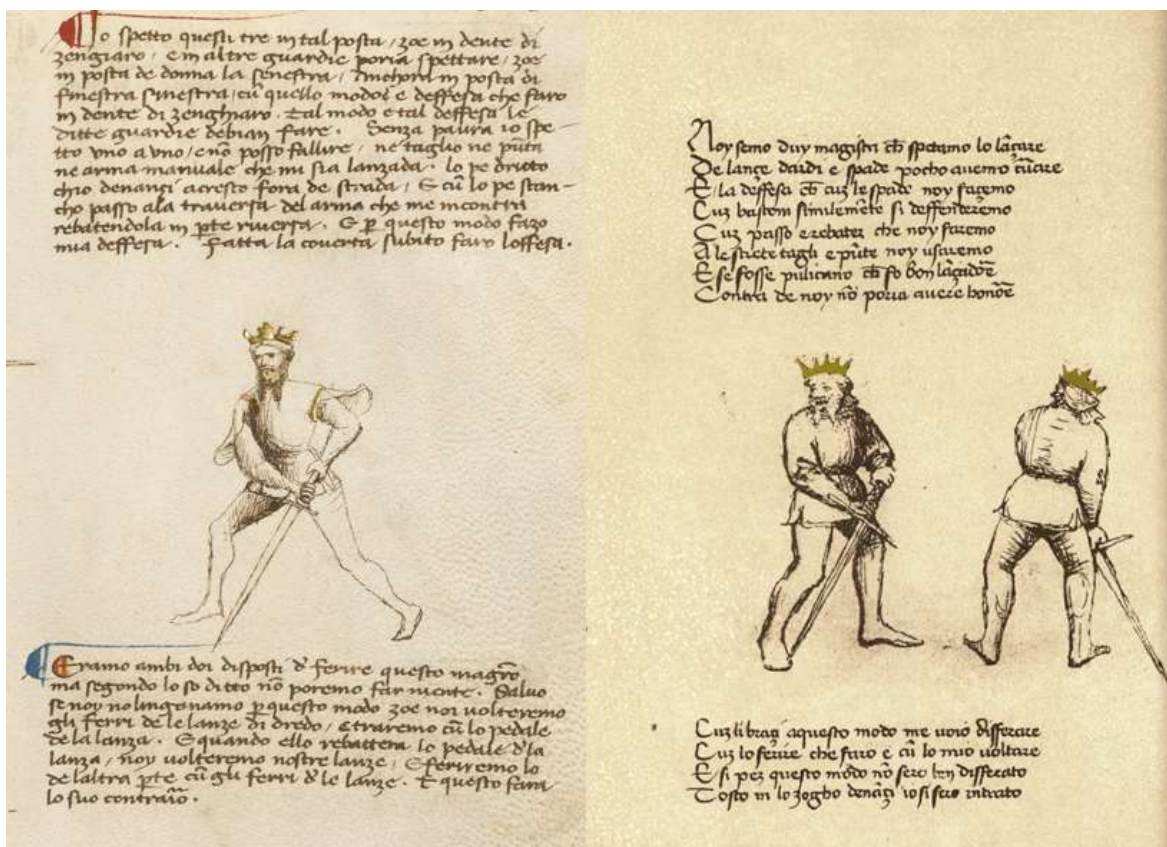 Io spetto questi tre in tal posta, zoe in dente di
zengiaro, e in altre guardie poria spettare, zoe
in posta de donna la senestra, Anchora in posta di
finestra sinestra, cū quello modo e deffesa che faro
in dente di zenghiaro. Tal modo e tal deffesa le
ditte guardie debian fare. Senza paura io spe-
tto uno a uno, e nō posso fallire, ne taglio ne pūta
ne arma manuale che mi sia lanzada. lo pe dritto
chio denanzi acresto fora de strada, E cū lo pe stan-
cho passo ala traversa del arma che me incontra
rebatendola in pte riversa. E p questo modo fazo
mia deffesa. Fatta la coverta subito faro loffesa.
Eramo ambi doi disposti d' ferire questo magrō
ma segondo lo so ditto nō poremo far niente. Salvo
se noy no lingonamo p questo modo zoe noi volteremo
gli ferri de le lanze di dredo, E traremo cū lo pedale
de la lanza. E quando ello rebattera lo pedale d' la
lanza, noy volteremo nostre lanze, E feriremo lo
de laltra pte cū gli ferri d' le lanze. E questo fara
lo suo contraīo.
Noy semo duy magistri ch̄ spetamo lo lāçare
De lançe dardi e spade pocho avemo cūcare
E la deffesa ch̄ cuz le spade noy facemo
Cuz bastoni similemēte si deffenderemo
Cuz passo e rebater che noy faremo
A le strete tagli e pūte noy usaremo
E se fosse pulicano ch̄ fo bon lāçadōe
Contra de noy nō poria avere honōe
Cuz libraç aquesto modo me voio differare
Cuz lo ferire che faro e cū lo mio voltare
E si pez questo modo nō sero ben differato
Tosto in lo zogho denāçi io si sero intrato